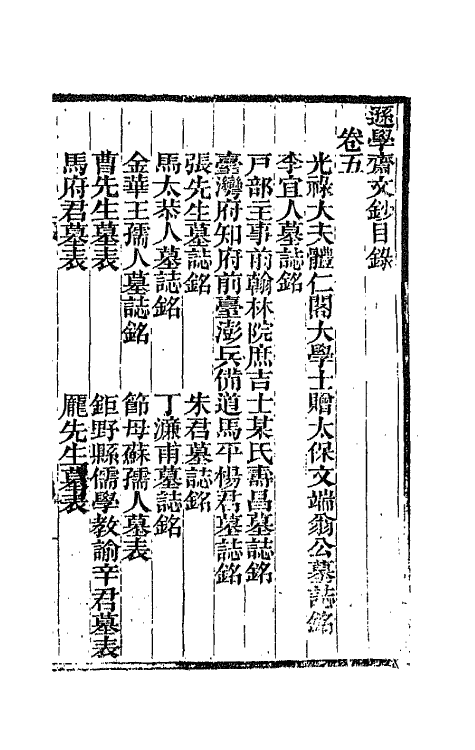 遜學齋文鈔目錄
卷五
光祿大夫體仁閣大學士贈太保文端翁公墓誌銘
李宜人墓誌銘
戸部主事前翰林院庶吉士某氏燾昌墓誌銘
臺灣府知府前臺澎兵備道馬平楊君墓誌銘
張先生墓誌銘 朱君墓誌銘
馬太恭人墓誌銘 丁濂甫墓誌銘
金華王孺人墓誌銘 節母蘇孺人墓表
曹先生墓表 鉅野縣儒學教諭辛君墓表
馬府君墓表 龐先生墓表